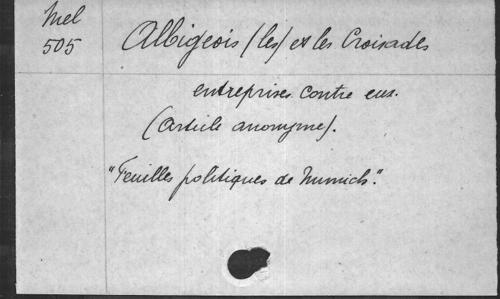 Mel
505
Albigeois (les) et les Croisades
entreprises contre eux.
(Article anonyme).
"Feuilles politiques de Munich".